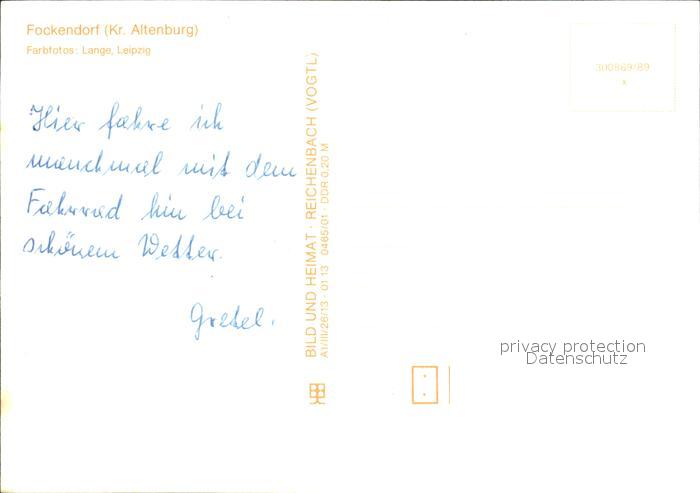 Fockendorf (Kr. Altenburg)
Farbfotos: Lange, Leipzig
Hier fahre ich
manchmal mit dem
Fahrrad hin bei
schönem Wetter.
Gretel.
BILD UND HEIMAT · REICHENBACH (VOGTL)
A1/III/26/13 · 01 13 0465/01 DDR 0,20 M
300869/89
x
privacy protection
Datenschutz